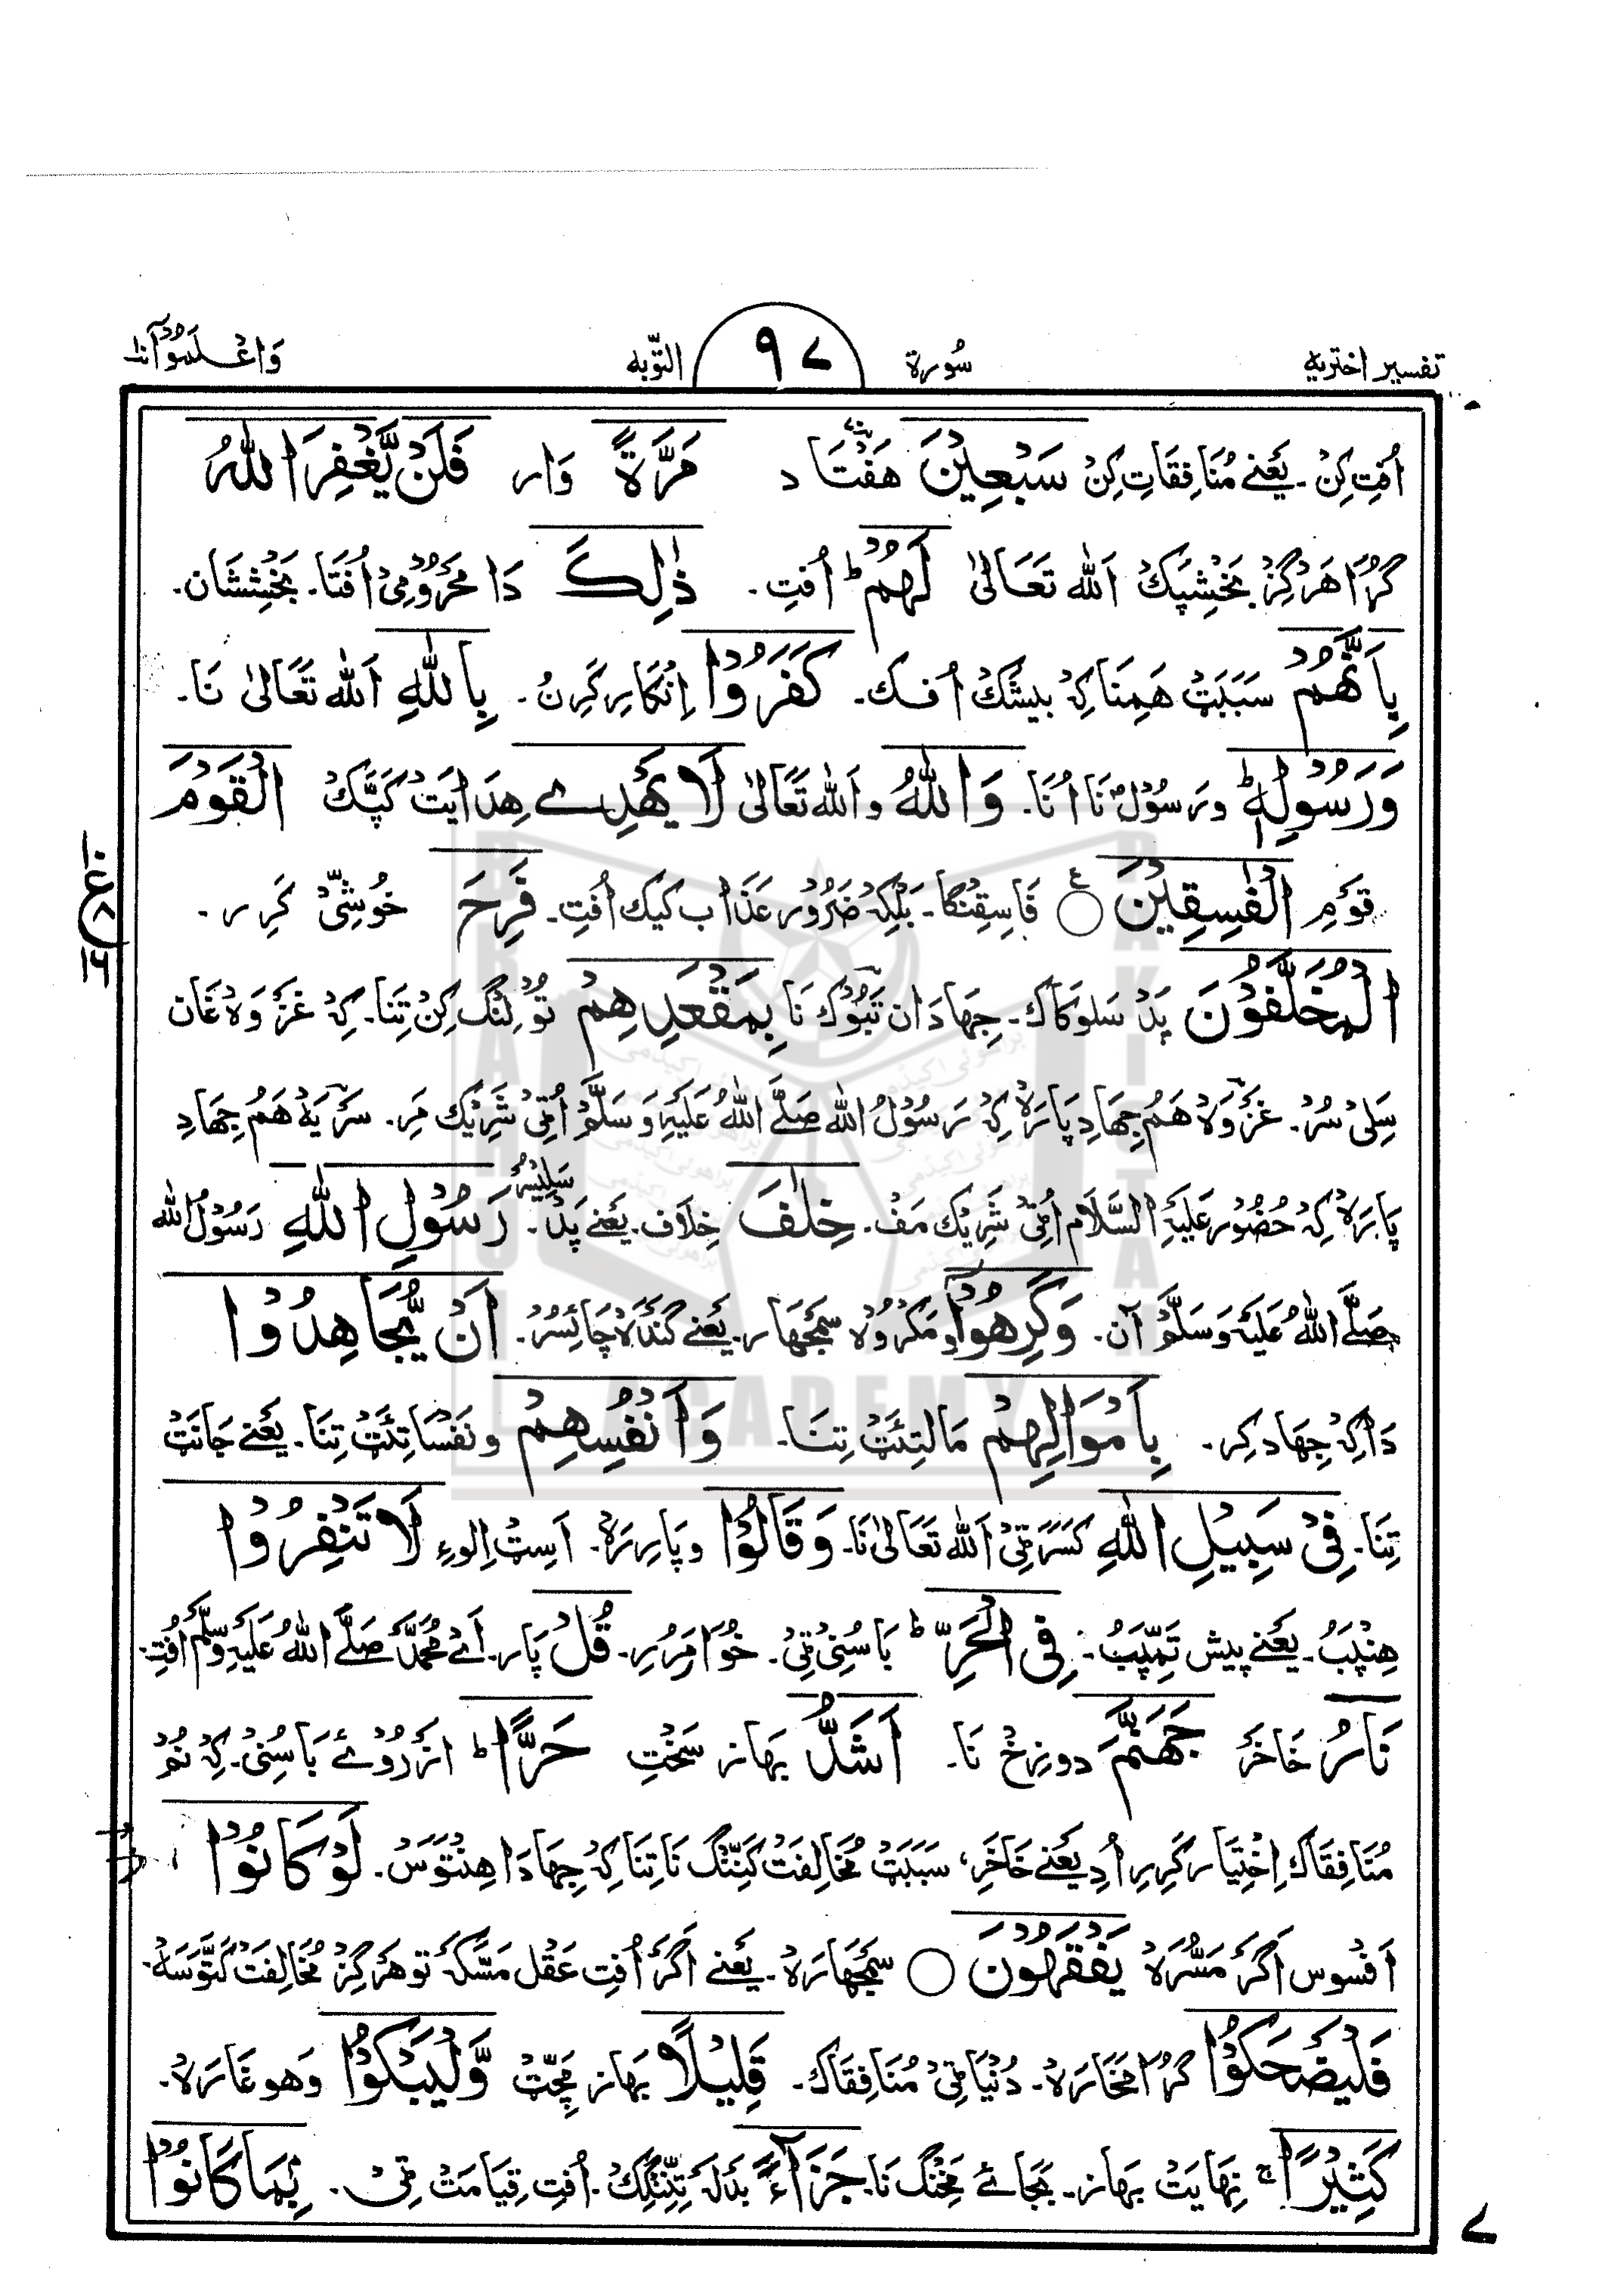 تفسیر اختریه سُورة ٩٧ التّوبه وَاعْلَمُوْآ ١٠
اُفتِ کِنْ۔ یَعْنے مُنَافِقَاتِ کِنْ سَبْعِیْنَ هَفْتَاد مَرَّةً وَار فَلَنْ یَّغْفِرَ اللهُ
گُرُا هَرْگِزْ بَخْشِپَکْ اَلله تَعَالیٰ لَهُمْ ؕ اُفتِ۔ ذٰلِكَ دَا مَحْرُوْمِیْ اُفتَا۔ بَخْشِشَان۔
بِاَنَّهُمْ سَبَبَتْ هَمِنَا کِهْ بیشَکْ اُفک۔ کَفَرُوْا اِنْکَار کَرِنُ۔ بِاللهِ اَلله تَعَالیٰ نَا۔
وَرَسُوْلِهٖ ؕ و رَسُوْلْ نَا اُنَا۔ وَاللهُ و اَلله تَعَالیٰ لَا یَهْدِے هِدَایَتْ کَپَّکْ الْقَوْمَ
قَوْمِ الْفٰسِقِیْنَ ○ ع فَاسِقَنْکَا۔ بَلْکِهْ ضَرُوْر عَذَاب کیک اُفتِ۔ فَرِحَ خُوشِیْ کَرِر۔
الْمُخَلَّفُوْنَ پَدْ سَلوکَاک۔ جِهَادَان تَبُوْک نَا بِمَقْعَدِهِمْ تُوْلِنْگ کِنْ تِنَا۔ کِهْ غَزْوَهْ غَان
سِلیْ سُرْ۔ غَزْوَهْ هَمُ جِهَادِ پَارَهْ کِهْ رَسُوْلُ الله صَلَّے اللهُ عَلَیْهِ وَ سَلَّمْ اُٹِیْ شَرِیْك مَرِ۔ سَرْیَهْ هَمُ جِهَادِ
پَارَهْ کِهْ حُضُوْر عَلَیْهِ السَّلَام اُٹِیْ شَرِیْك مَفْ۔ خِلٰفَ خِلَاف۔ یَعْنے پَدْ۔ رَسُوْلِ اللهِ رَسُوْلُ الله
صَلَّے اللهُ عَلَیْهِ وَسَلَّمْ آن۔ وَکَرِهُوْٓا و مَکْرُوْهْ سَمْجَهَار۔ یَعْنے گَنْدَهْ چَائِسُرْ۔ اَنْ یُّجَاهِدُوْا
دَاکِهْ جِهَاد کِر۔ بِاَمْوَالِهِمْ مَالتِئَتْ تِنَا۔ وَاَنْفُسِهِمْ و نَفْسَاتِئَتْ تِنَا۔ یَعْنے جَانَتْ
تِنَا۔ فِیْ سَبِیْلِ اللهِ کَسَرَ ٹِیْ اَلله تَعَالیٰ نَا۔ وَقَالُوْا و پَارِرَهْ۔ اَسِتْ اِلوءِ لَا تَنْفِرُوْا
هِنْپَبُ۔ یَعْنے پیش تَمِّپَبُ۔ فِی الْحَرِّ ؕ بَاسُنِیْ ٹِیْ۔ خُوَا مَرِرِ۔ قُلْ پَار۔ اَے مُحَمَّدْ صَلَّے اللهُ عَلَیْهِ وَسَلَّمْ اُفتِ۔
نَارُ خَاخَرْ جَهَنَّمَ دوزخْ نَا۔ اَشَدُّ بهَاز سَخْتِ حَرًّا ؕ اَزْ رُوْئے بَاسُنِیْ۔ کِهْ نُمْ
مُنَافِقَاك اِخْتِیَار کَرِرِ اُدِ یَعْنے خَاخَرِ، سَبَبَتْ مُخَالِفَتْ کَنِنْگ نَا تِنَا کِهْ جِهَادَا هِنْتَوَسْ۔ لَوْ کَانُوْا
اَفْسُوس اَگَرْ مَسُّرَهْ یَفْقَهُوْنَ ○ سَمْجَهَارَهْ۔ یَعْنے اَگَرْ اُفتِ عَقْل مَسَّکَهْ تو هَرْگِزْ مُخَالِفَتْ کَتَّوَسَهْ
فَلْیَضْحَکُوْا گُرُا مَخَارَهْ۔ دُنْیَا ٹِیْ مُنَافِقَاك۔ قَلِیْلًا بهَاز مَچِّتْ وَّلْیَبْکُوْا وَهو غَارَهْ۔
کَثِیْرًا ج نِهَایَتْ بهَاز۔ بَجَائے مَخِنْگ نَا۔ جَزَآءًۢ بَدَلَهْ تِنِنْگِکْ۔ اُفتِ قِیَامَتْ ٹِیْ۔ بِمَا کَانُوْا